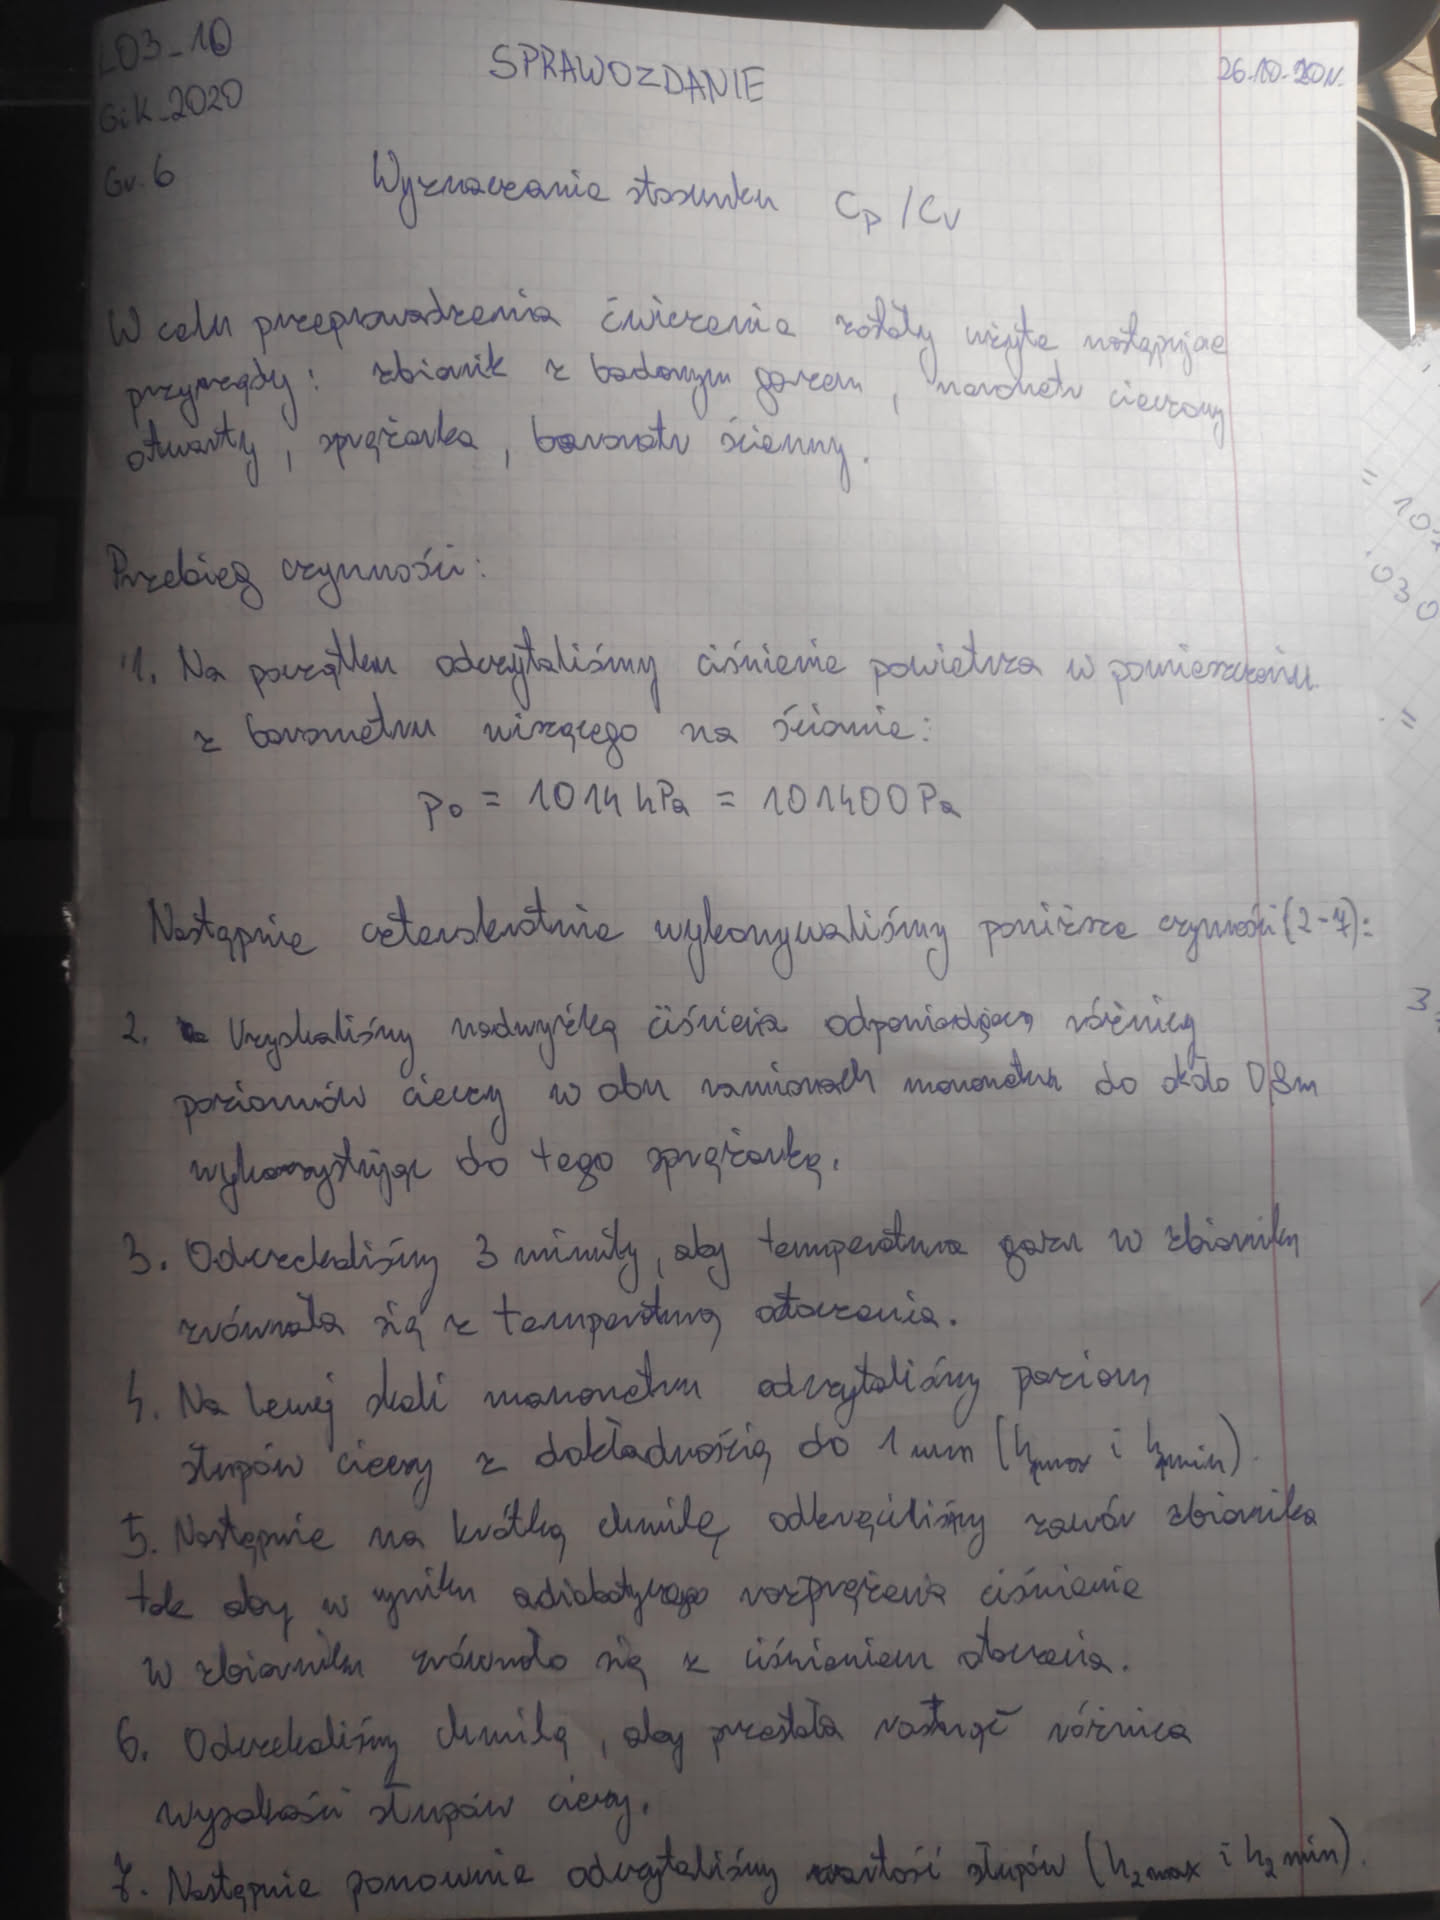 L03_10
SPRAWOZDANIE
26.10.20r.
GiK_2020
Gr. 6
Wyznaczanie stosunku Cp/Cv
W celu przeprowadzenia ćwiczenia zostały użyte następujące
przyrządy: zbiornik z badanym gazem, manometr cieczowy
otwarty, sprężarka, barometr ścienny.
Przebieg czynności:
1. Na początku odczytaliśmy ciśnienie powietrza w pomieszczeniu
z barometru wiszącego na ścianie:
p₀ = 1014 hPa = 101400 Pa
Następnie czterokrotnie wykonywaliśmy poniższe czynności (2-7):
2. Uzyskaliśmy nadwyżkę ciśnienia odpowiadającą różnicy
poziomów cieczy w obu ramionach manometru do około 0,8m
wykorzystując do tego sprężarkę.
3. Odczekaliśmy 3 minuty, aby temperatura gazu w zbiorniku
zrównała się z temperaturą otoczenia.
4. Na lewej skali manometru odczytaliśmy poziom
słupów cieczy z dokładnością do 1 mm (h₁max i h₁min).
5. Następnie na krótką chwilę odkręciliśmy zawór zbiornika
tak aby w wyniku adiabatycznego rozprężenia ciśnienie
w zbiorniku zrównało się z ciśnieniem otoczenia.
6. Odczekaliśmy chwilę, aby przestała rosnąć różnica
wysokości słupów cieczy.
7. Następnie ponownie odczytaliśmy wartość słupów (h₂max i h₂min).
= 107
030
=
3